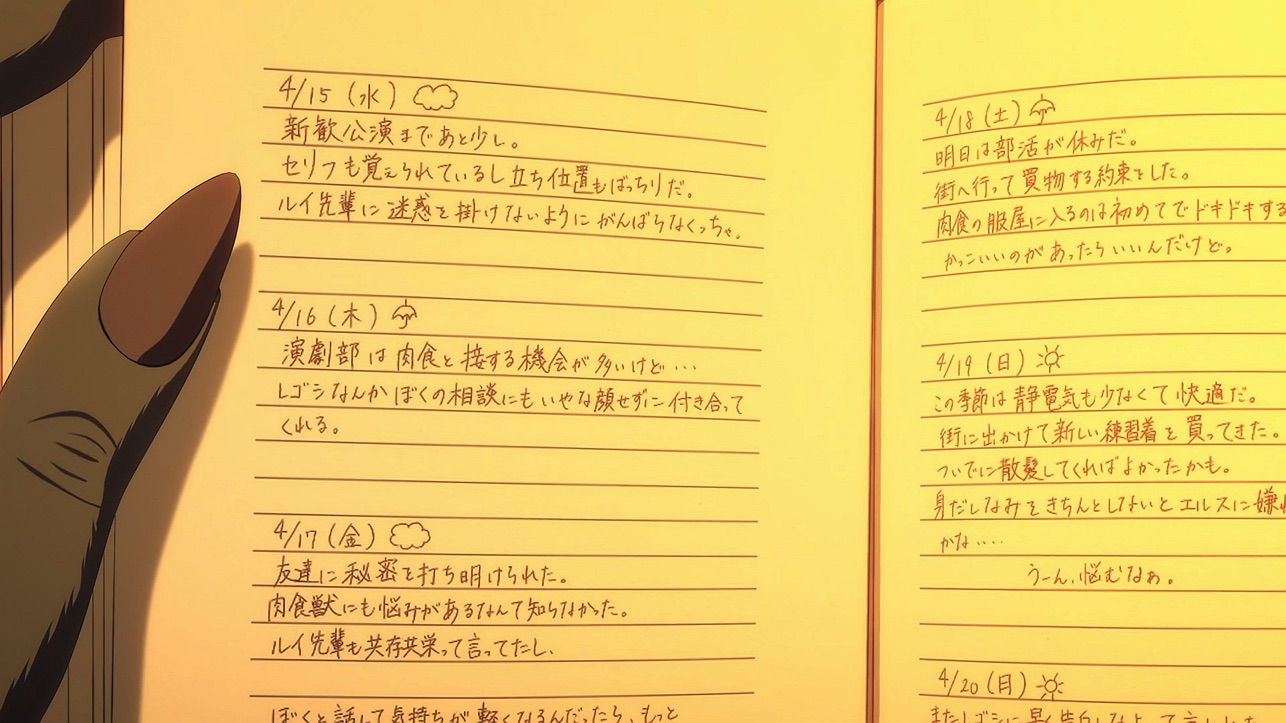 4/15(水)
新歓公演まであと少し。
セリフも覚えられているし立ち位置もばっちりだ。
ルイ先輩に迷惑を掛けないようにがんばらなくっちゃ。
4/16(木)
演劇部は肉食と接する機会が多いけど・・・
レゴシなんかぼくの相談にもいやな顔せずに付き合って
くれる。
4/17(金)
友達に秘密を打ち明けられた。
肉食獣にも悩みがあるなんて知らなかった。
ルイ先輩も共存共栄って言ってたし、
ぼくと話して気持ちが軽くなるんだったら、もっと
4/18(土)
明日は部活が休みだ。
街へ行って買物する約束をした。
肉食の服屋に入るのは初めてでドキドキする
かっこいいのがあったらいいんだけど。
4/19(日)
この季節は静電気も少なくて快適だ。
街に出かけて新しい練習着を買ってきた。
ついでに散髪してくればよかったかも。
身だしなみをきちんとしないとエルスに嫌
かな・・・・
うーん、悩むなぁ。
4/20(日)
またレゴシに早く告白しなよって言